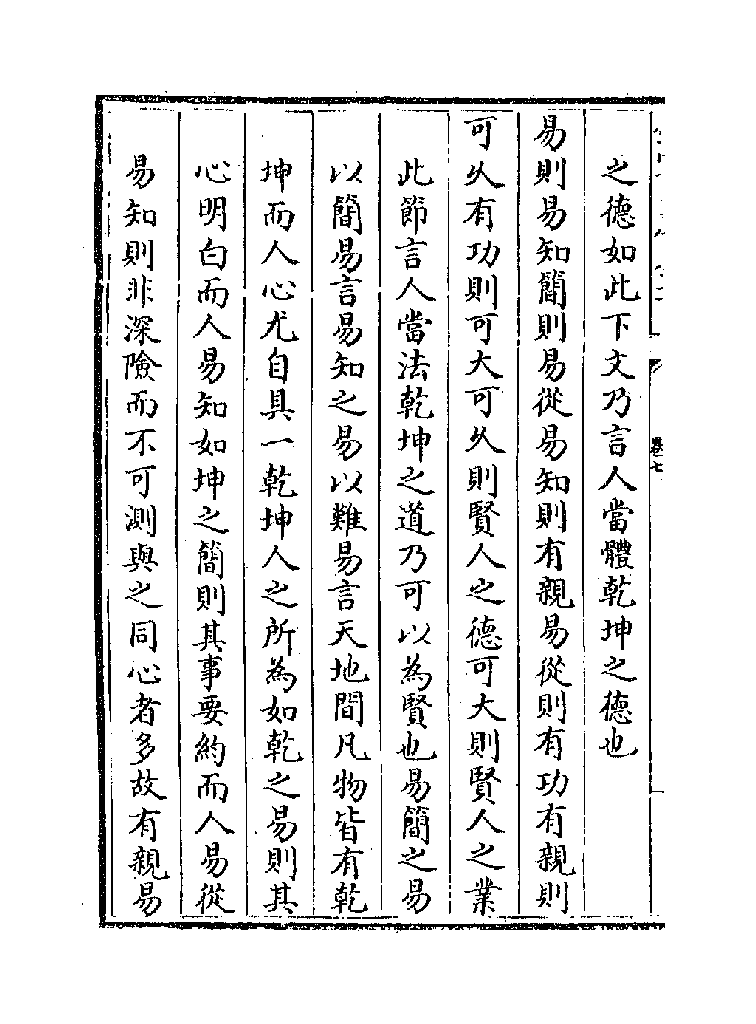 之德如此下文乃言人當體乾坤之德也
易則易知簡則易從易知則有親易從則有功有親則
可久有功則可大可久則賢人之德可大則賢人之業
此節言人當法乾坤之道乃可以為賢也易簡之易
以簡易言易知之易以難易言天地間凡物皆有乾
坤而人心尤自具一乾坤人之所為如乾之易則其
心明白而人易知如坤之簡則其事要約而人易從
易知則非深險而不可測與之同心者多故有親易
卷七